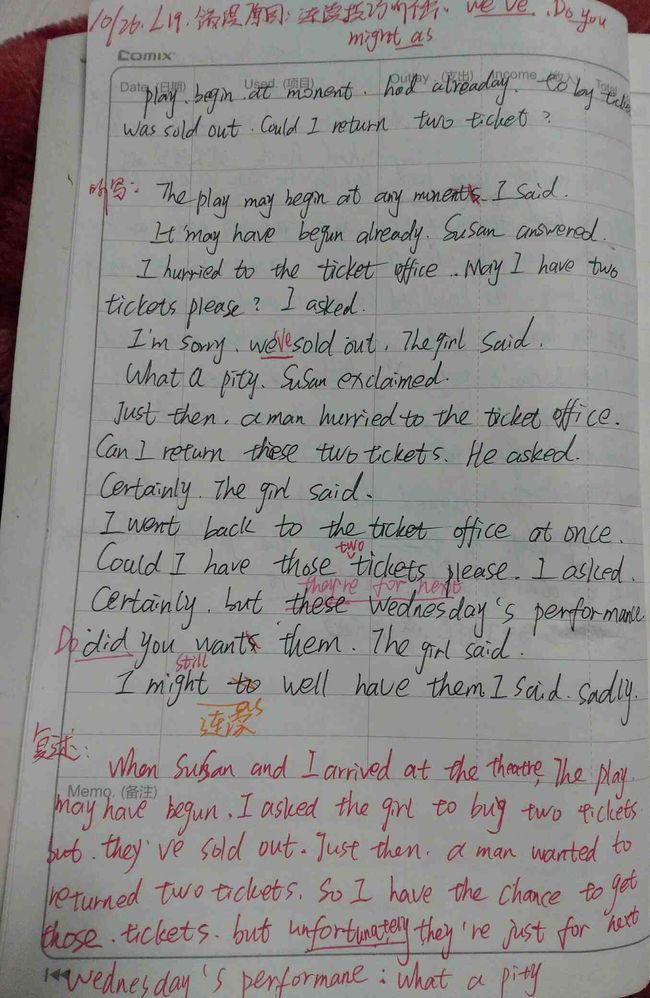 10/26. L19. 错误原因: 连读技巧听法. we've. Do you
might as
Comix
Date (日期) Used. (项目) Outlay. (支出) Income (收入) Total
play. begin. at monent. had alreaday. to by ticke
was sold out. Could I return two ticket?
听写: The play may begin at any monents I said.
It may have begun already. Susan answered.
I hurried to the ticket office.. May I have two
tickets please? I asked.
I'm sorry. we've sold out. The girl said.
What a pity. Susan exclaimed.
Just then. a man hurried to the ticket office.
Can I return these two tickets. He asked.
Certainly. The girl said.
I went back to the ticket office at once.
two
Could I have those tickets please. I asked.
they're for next
Certainly. but these Wednesday's performance
Do did you wants them. The girl said.
still
I might to well have them I said. sadly.
as
连读
复述: When Susan and I arrived at the theatre, The play.
Memo. (备注)
may have begun. I asked the girl to bug two tickets
but. they've sold out. Just then. a man wanted to
returned two tickets. So I have the chance to get
those. tickets. but unfortunately they're just for next
Wednesday's performane: what a pity